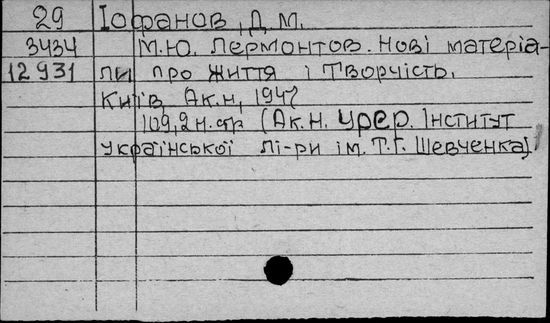 29 Іофанов, Д.М.
3434 М.Ю. Лермонтов. Нові матеріа-
12931 ли про життя і творчість.
Київ, Ак.н, 1947
109,2н.стр (Ак.н. УРСР. Інститут
української лі-ри ім. Т.Г. Шевченка)